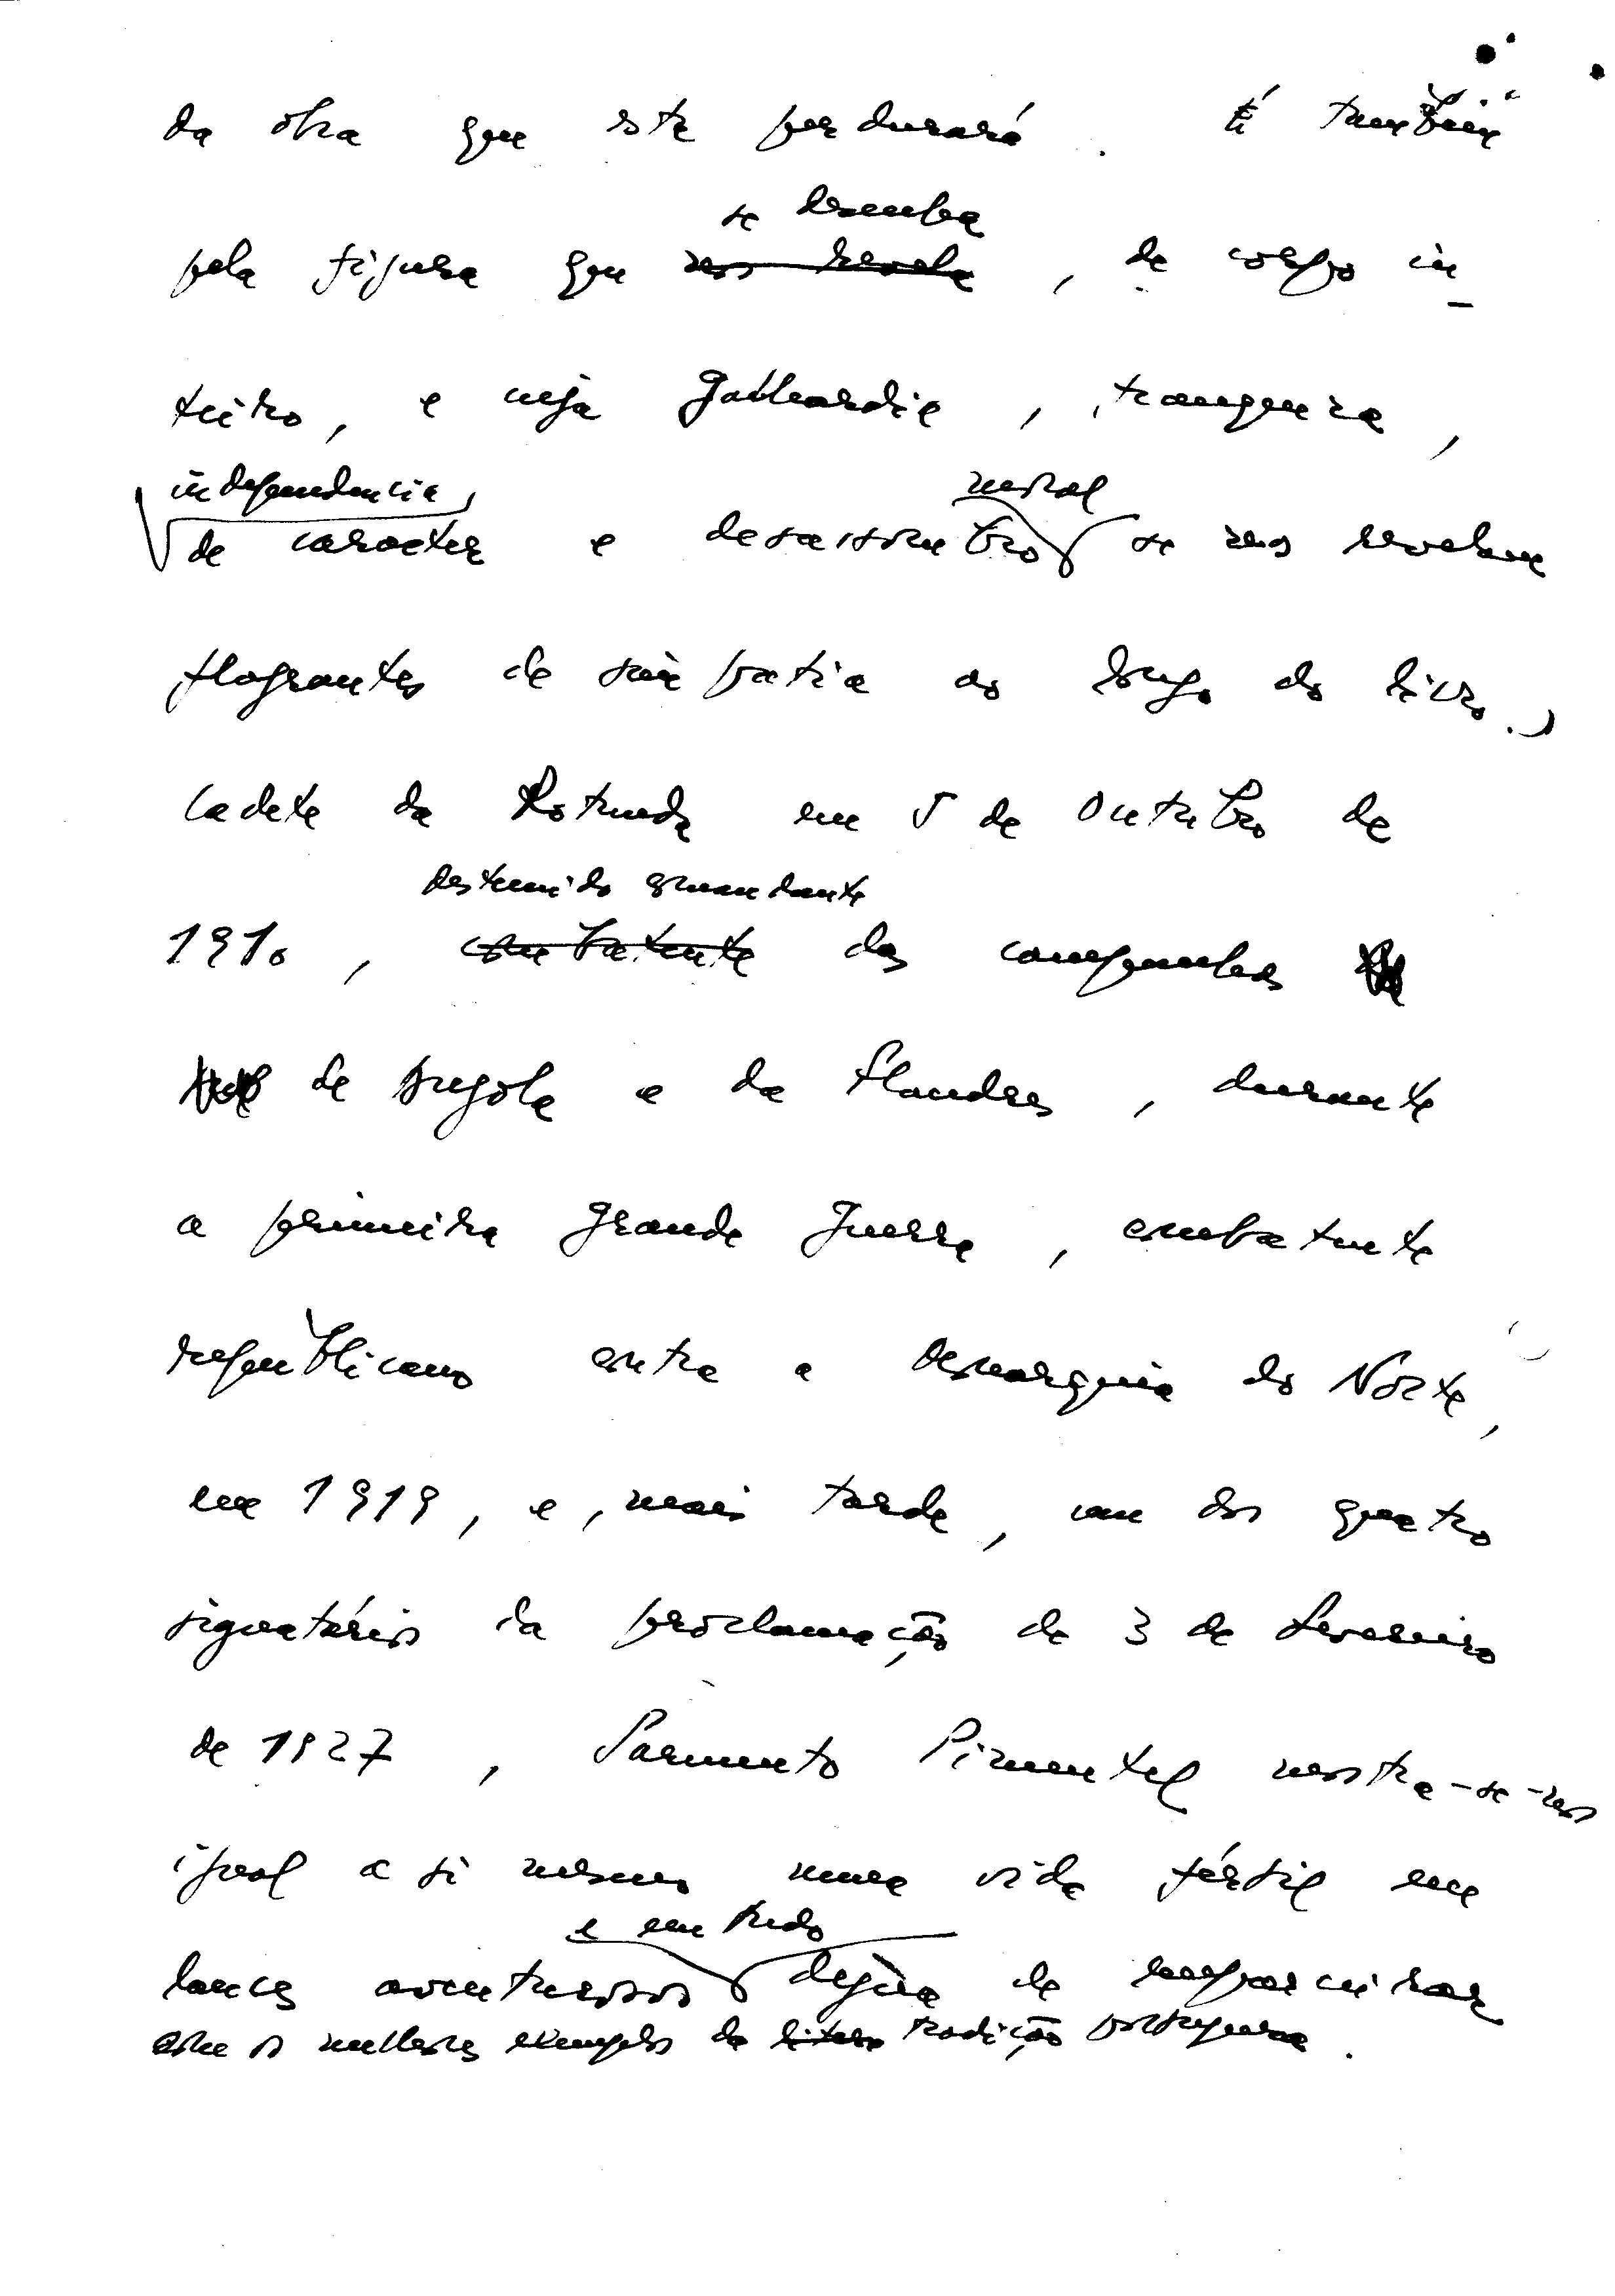 da obra que esta perdurará. É também
se desenha
pela figura que nos revela, de corpo in-
teiro, e cuja galhardia, franqueza,
independência moral
de carácter e desassombro se nos revelam
flagrantes de simpatia ao longo do livro.
Cadete da Rotunda em 5 de Outubro de
destemido comandante
1910, combatente das campanhas
de Angola e da Flandres, durante
a primeira grande guerra, combatente
republicano contra a Monarquia do Norte,
em 1919, e, mais tarde, um dos quatro
signatários da proclamação de 3 de Fevereiro
de 1927, Sarmento Pimentel mostra-se-nos
igual a si mesmo numa vida fértil em
e em tudo
lances aventurosos digna de emparceirar
com os melhores exemplos da tradição portuguesa.